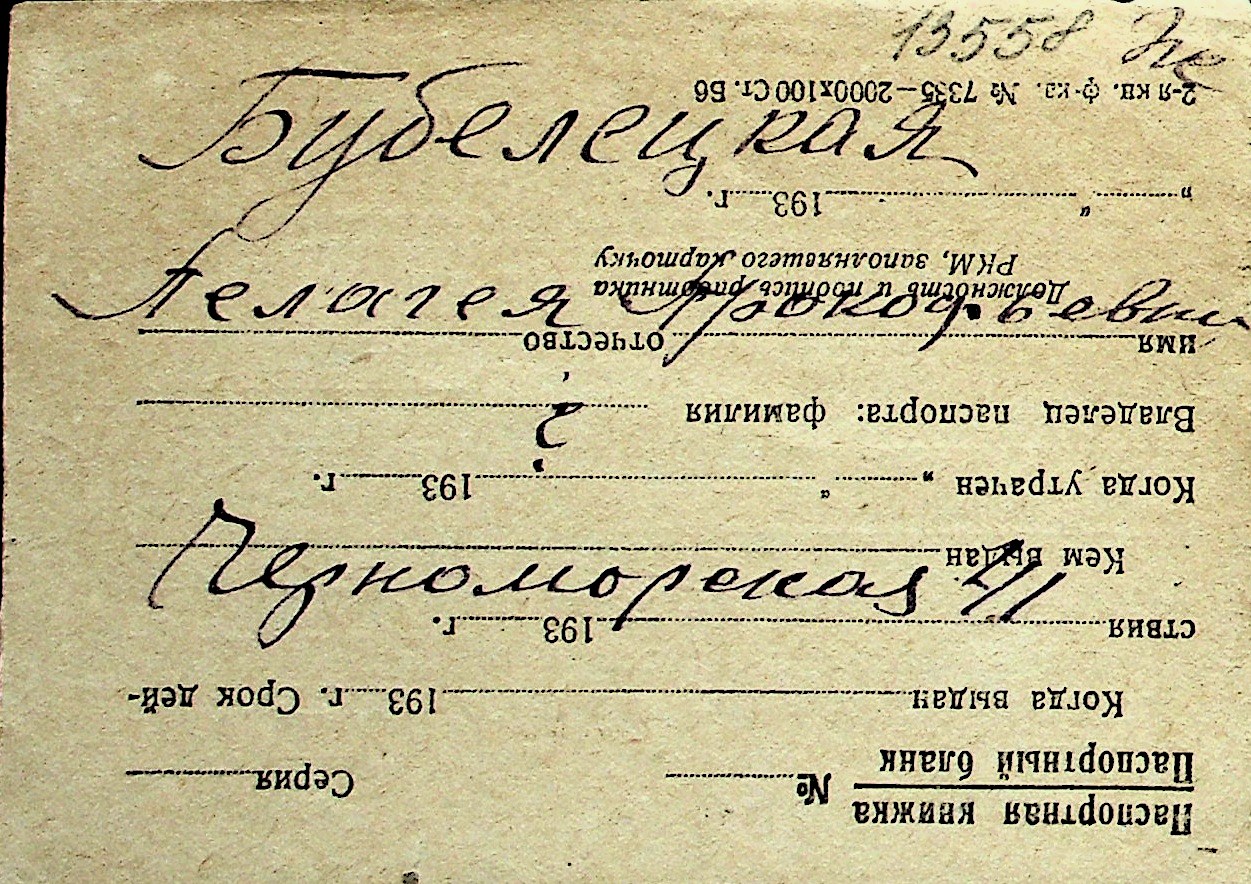 13558
Бубелецкая
Пелагея Прокофьевна
?
Черноморская 41
Паспортная книжка
Паспортный бланк
№ Серия
Когда выдан 193 г. Срок дей-
ствия 193 г.
Кем выдан
Когда утрачен „ “ 193 г.
Владелец паспорта: фамилия
имя отчество
Должность и подпись работника
РКМ, заполнявшего карточку
„ “ 193 г.
2-я кн. ф-ка. № 7335—2000х100 Ст. Бб